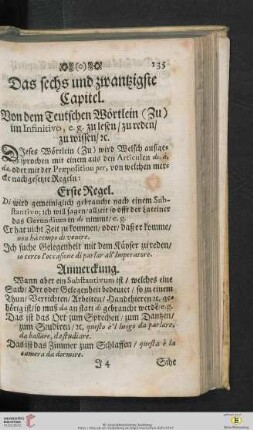 (o) 135
Das sechs und zwantzigste
Capitel.
Von dem Teutschen Wörtlein (Zu)
im Infinitivo, e. g. zu lesen / zu reden /
zu wissen / ꝛc.
DIeses Wörtlein (Zu) wird Welsch ausge-
sprochen mit einem aus den Articulen di, à,
da, oder mit der Præposition per, von welchen mer-
cke nachgesetzte Regeln:
Erste Regel.
Di wird gemeiniglich gebraucht nach einem Sub-
stantivo; ich will sagen / allzeit so offt der Lateiner
das Gerundium in di nimmt / e. g.
Er hat nicht Zeit zu kommen / oder / daß er komme /
non hà tempo di venire.
Ich suche Gelegenheit mit dem Käyser zu reden /
io cerco l'occasione di parlar all' Imperatore.
Anmerckung.
Wann aber ein Substantivum ist / welches eine
Sach / Ort oder Gelegenheit bedeutet / so zu einem
Thun / Verrichten / Arbeiten / Handthieren ꝛc. ge-
hörig ist / so muß da an statt di gebraucht werden / e. g.
Das ist das Ort zum Sprechen / zum Dantzen /
zum Studiren / ꝛc, questo è 'l luogo da parlare,
da ballare, da studiare.
Das ist das Zimmer zum Schlaffen / questa è la
camera da dormire.
J 4 Sihe